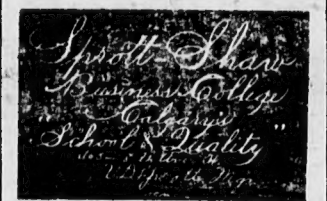 Sprott-Shaw
Business College
Calgary's
"School of Quality"